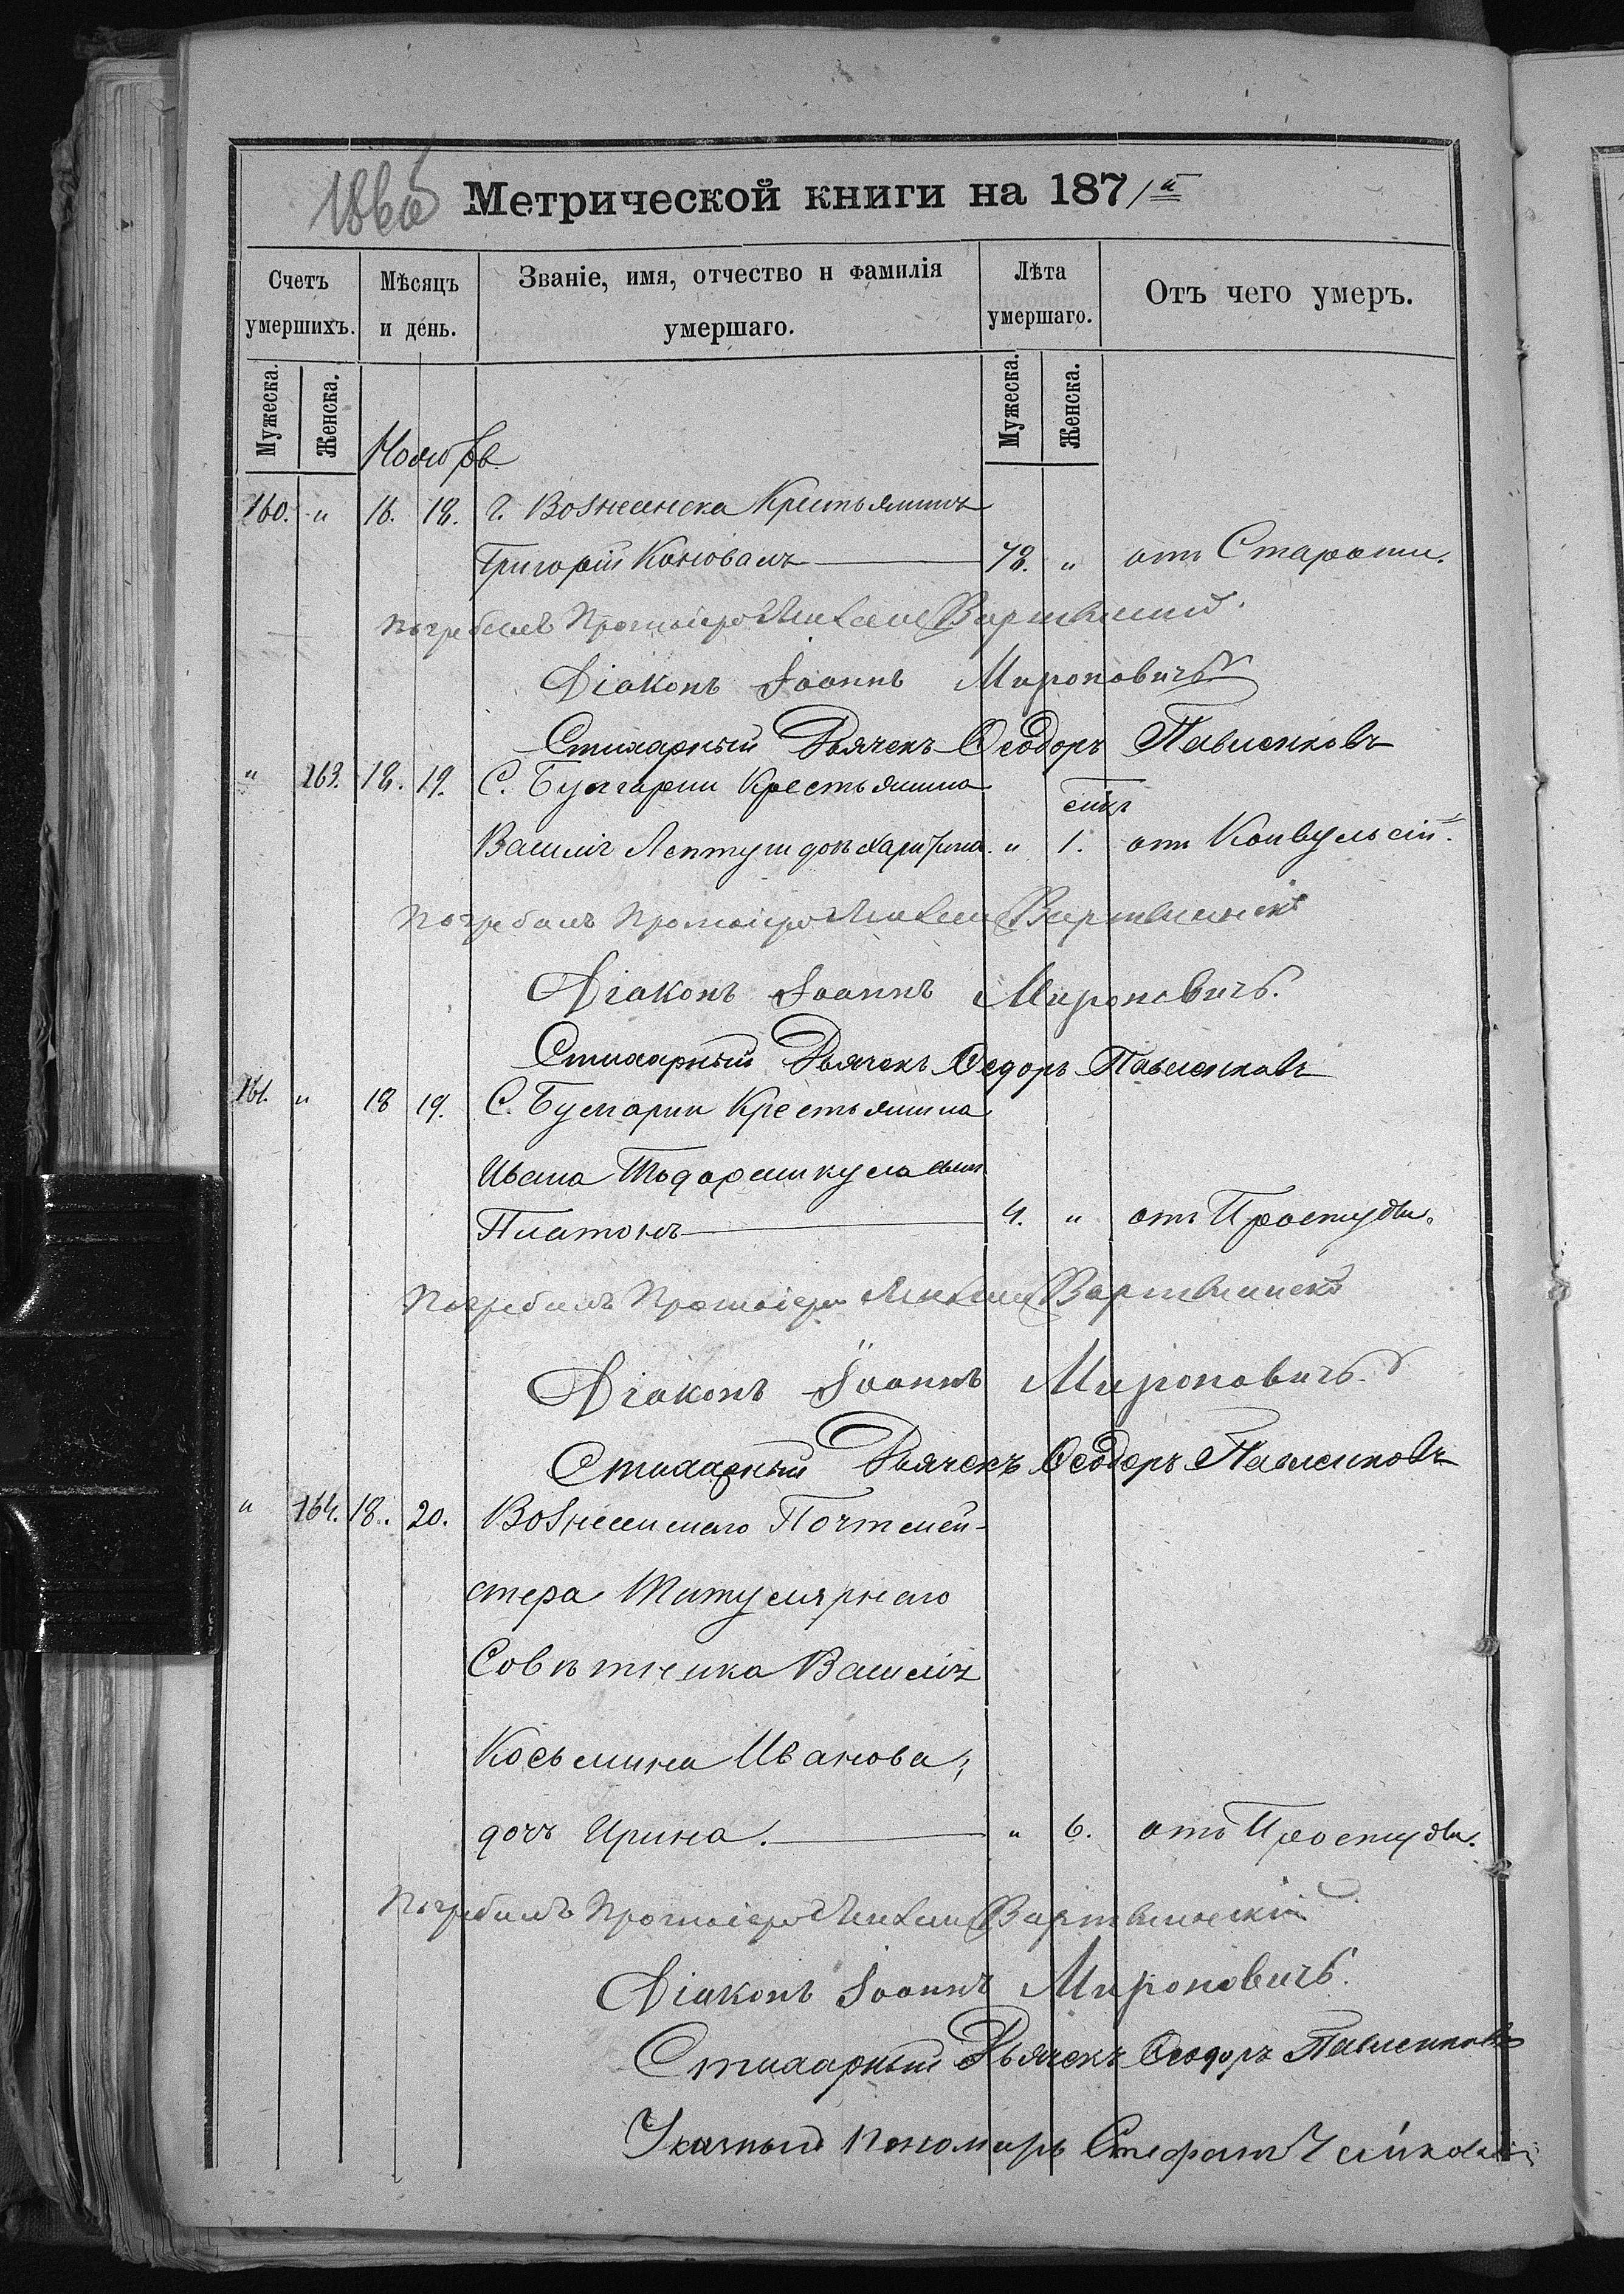 Метрической книги на 187/й
Счетъ умершихъ.
Мѣсяцъ и день.
Званіе, имя, отчество и фамилія умершаго.
Лѣта умершаго.
Отъ чего умеръ.
Мужеска. Женска. Мужеска. Женска.
Ноябрь
160. " 16. 18. г. Вознесенска Крестьянинъ
Григорій Коновалъ 78. " отъ Старости.
Погребалъ Протоіерей
Діаконъ Іоаннъ Мироновичъ
Стихарный Дьячекъ Ѳеодоръ Павленковъ
" 163. 18. 19. С. Булгарки Крестьянина
Василія дочь Харитина. " 1. отъ Конвульсій.
Погребалъ Протоіерей
Діаконъ Іоаннъ Мироновичъ.
Стихарный Дьячекъ Ѳедоръ Павленковъ
161. " 18 19. С. Булгарки Крестьянина
Ивана сынъ
Платонъ 4. " отъ Простуды.
Погребалъ Протоіерей
Діаконъ Іоаннъ Мироновичъ
Стихарный Дьячекъ Ѳеодоръ Павленковъ
" 164. 18. 20. Вознесенскаго Почтмей-
стера Титулярнаго
Совѣтника Василія
Косьмина Иванова,
дочь Ирина. " 6. отъ Простуды.
Погребалъ Протоіерей
Діаконъ Іоаннъ Мироновичъ.
Стихарный Дьячекъ Ѳеодоръ Павленковъ
Указный Пономарь Стефанъ